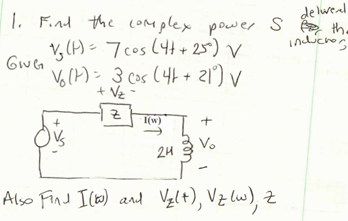 1. Find the complex power S delivered
the
inductor,
Given Vs(t) = 7 cos (4t + 25°) V
Vo(t) = 3 cos (4t + 21°) V
+ Vz -
Z
I(w)
+
Vs
-
2H
+
Vo
-
Also Find I(w) and Vz(t), Vz(w), Z